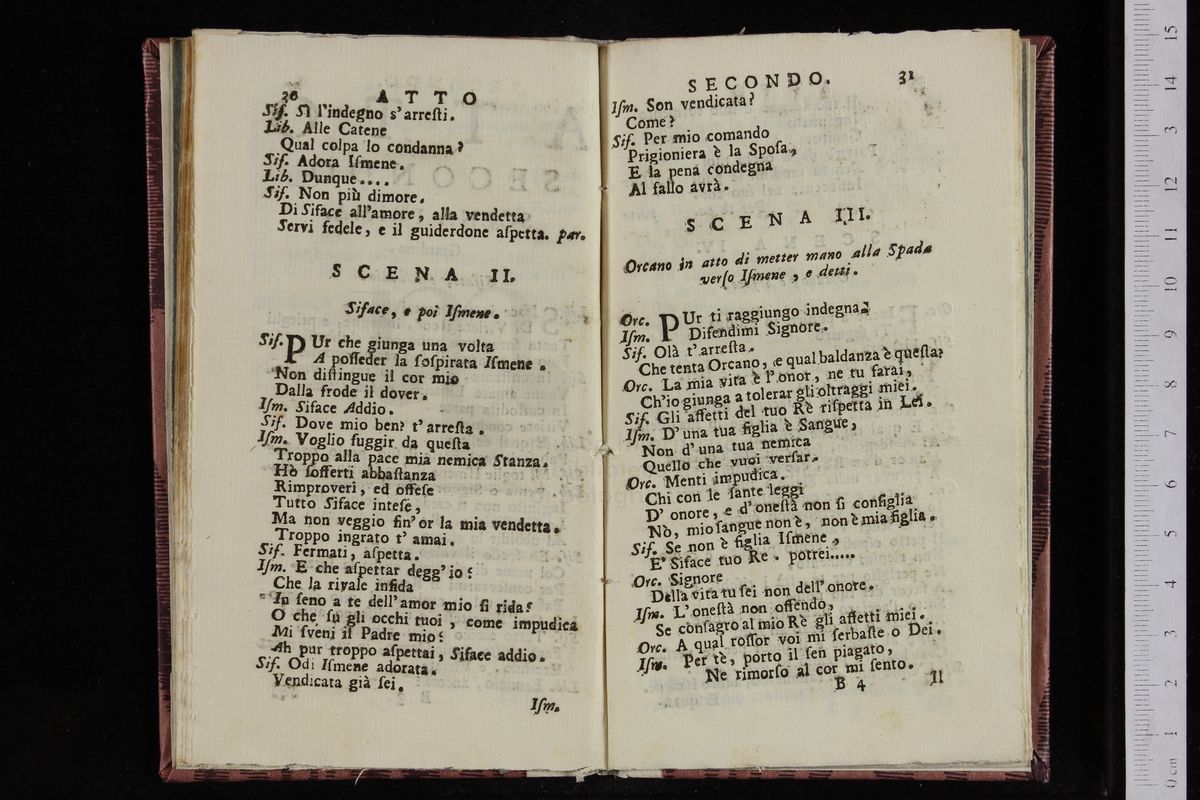 30 ATTO
Sif. Sì l'indegno s'arreſti.
Lib. Alle Catene
Qual colpa lo condanna?
Sif. Adora Iſmene.
Lib. Dunque....
Sif. Non più dimore.
Di Siface all'amore, alla vendetta
Servi fedele, e il guiderdone aſpetta. par.
SCENA II.
Siface, e poi Iſmene.
Sif. PUr che giunga una volta
A poſſeder la ſoſpirata Iſmene.
Non diſtingue il cor mio
Dalla frode il dover.
Iſm. Siface Addio.
Sif. Dove mio ben? t'arreſta.
Iſm. Voglio fuggir da queſta
Troppo alla pace mia nemica Stanza.
Hò ſofferti abbaſtanza
Rimproveri, ed offeſe
Tutto Siface inteſe,
Ma non veggio fin'or la mia vendetta.
Troppo ingrato t'amai.
Sif. Fermati, aſpetta.
Iſm. E che aſpettar degg'io?
Che la rivale infida
In ſeno a te dell'amor mio ſi rida?
O che ſu gli occhi tuoi, come impudica
Mi ſveni il Padre mio?
Ah pur troppo aſpettai, Siface addio.
Sif. Odi Iſmene adorata.
Vendicata già ſei.
Iſm.
SECONDO. 31
Iſm. Son vendicata?
Come?
Sif. Per mio comando
Prigioniera è la Spoſa,
E la pena condegna
Al fallo avrà.
SCENA III.
Orcano in atto di metter mano alla Spada
verſo Iſmene, e detti.
Orc. PUr ti raggiungo indegna?
Iſm. Difendimi Signore.
Sif. Olà t'arreſta.
Che tenta Orcano, e qual baldanza è queſta?
Orc. La mia vita è l'onor, ne tu farai,
Ch'io giunga a tolerar gli oltraggi miei.
Sif. Gli affetti del tuo Rè riſpetta in Lei.
Iſm. D'una tua figlia è Sangue,
Non d'una tua nemica
Quello che vuoi verſar.
Orc. Menti impudica.
Chi con le ſante leggi
D'onore, e d'oneſtà non ſi conſiglia
Nò, mio ſangue non è, non è mia figlia.
Sif. Se non è figlia Iſmene,
E' Siface tuo Re. potrei.....
Orc. Signore
Della vita tu ſei non dell'onore.
Iſm. L'oneſtà non offendo,
Se conſagro al mio Rè gli affetti miei.
Orc. A qual roſſor voi mi ſerbaſte o Dei.
Iſm. Per tè, porto il ſen piagato,
Ne rimorſo al cor mi ſento.
B 4 Il
15
14
13
12
11
10
9
8
7
6
5
4
3
2
1
0 cm